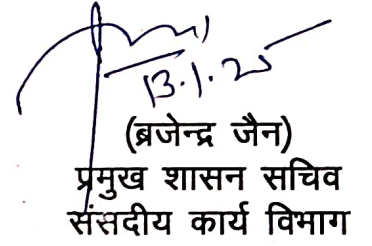 13.1.25
(ब्रजेन्द्र जैन)
प्रमुख शासन सचिव
संसदीय कार्य विभाग